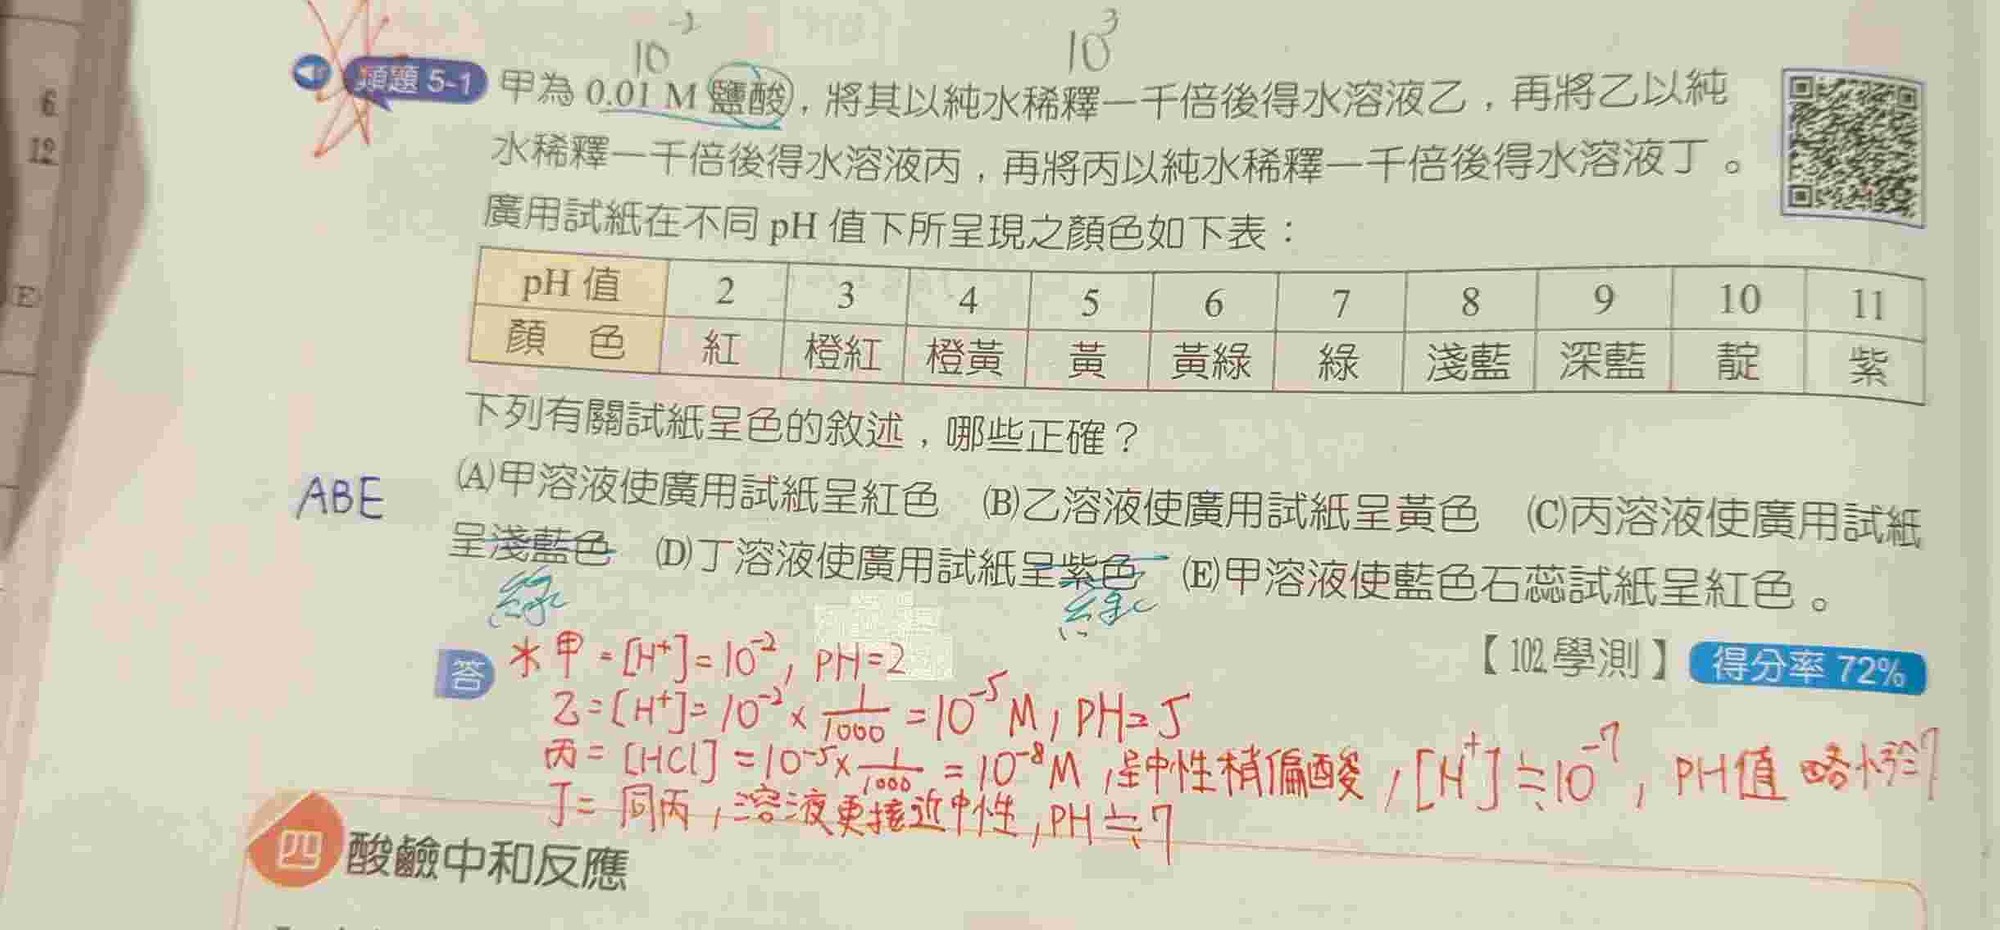 10⁻²
10³
類題 5-1 甲為 0.01 M 鹽酸，將其以純水稀釋一千倍後得水溶液乙，再將乙以純
水稀釋一千倍後得水溶液丙，再將丙以純水稀釋一千倍後得水溶液丁。
廣用試紙在不同 pH 值下所呈現之顏色如下表：
pH 值 2 3 4 5 6 7 8 9 10 11
顏 色 紅 橙紅 橙黃 黃 黃綠 綠 淺藍 深藍 靛 紫
下列有關試紙呈色的敘述，哪些正確？
ABE
(A)甲溶液使廣用試紙呈紅色 (B)乙溶液使廣用試紙呈黃色 (C)丙溶液使廣用試紙
呈淺藍色 (D)丁溶液使廣用試紙呈紫色 (E)甲溶液使藍色石蕊試紙呈紅色。
綠 綠
【102.學測】 得分率 72%
答 * 甲 = [H⁺] = 10⁻², PH = 2
乙 = [H⁺] = 10⁻² × 1/1000 = 10⁻⁵ M, PH = 5
丙 = [HCl] = 10⁻⁵ × 1/1000 = 10⁻⁸ M, 呈中性稍偏酸, [H⁺] ≒ 10⁻⁷, PH值 略小於7
丁 = 同丙, 溶液更接近中性, PH ≒ 7
四 酸鹼中和反應
6
12
(E)